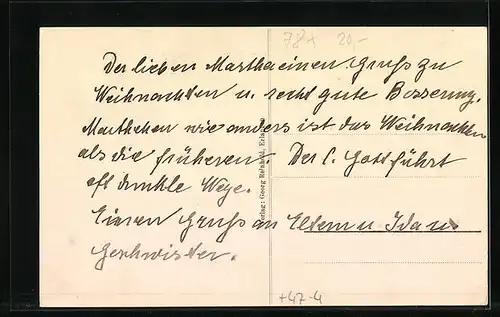 78x 20,-
Der lieben Martha einen Gruß zu
Weihnachten u. recht gute Besserung.
Marthchen wie anders ist das Weihnachten
als die früheren. Der l. Gott führt
oft dunkle Wege.
Einen Gruß an Eltern u Ida u.
Geschwister.
Verlag: Georg Reinhold, Erla
+47-4